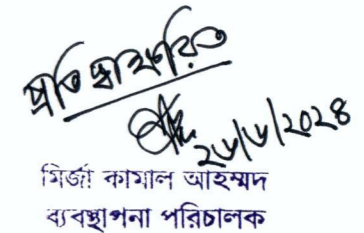 প্রতি স্বাক্ষরিত
২৬/৬/২০২৪
মির্জা কামাল আহম্মদ
ব্যবস্থাপনা পরিচালক